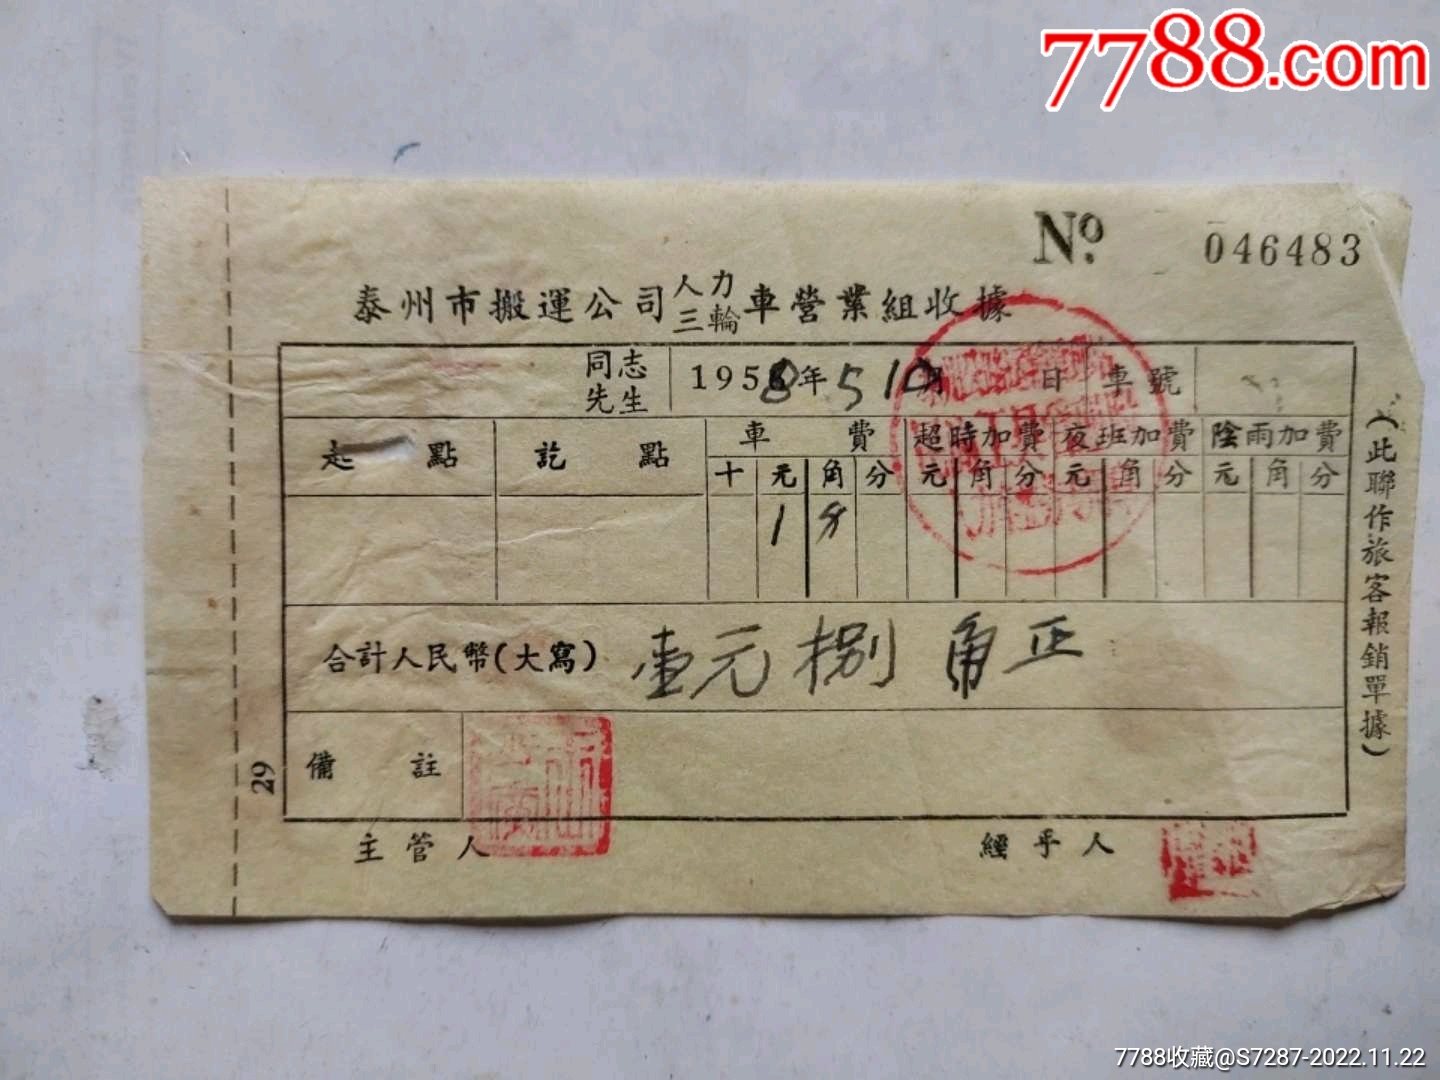 7788.com
№ 046483
泰州市搬運公司人力三輪車營業組收據
同志先生 1958年 5 10 月 日 車號
起點 訖點 車費 超時加費 夜班加費 陰雨加費
十 元 角 分 元 角 分 元 角 分 元 角 分
1
合計人民幣(大寫) 壹元捌角正
備註
29
主管人 經手人
(此聯作旅客報銷單據)
7788收藏@S7287-2022.11.22